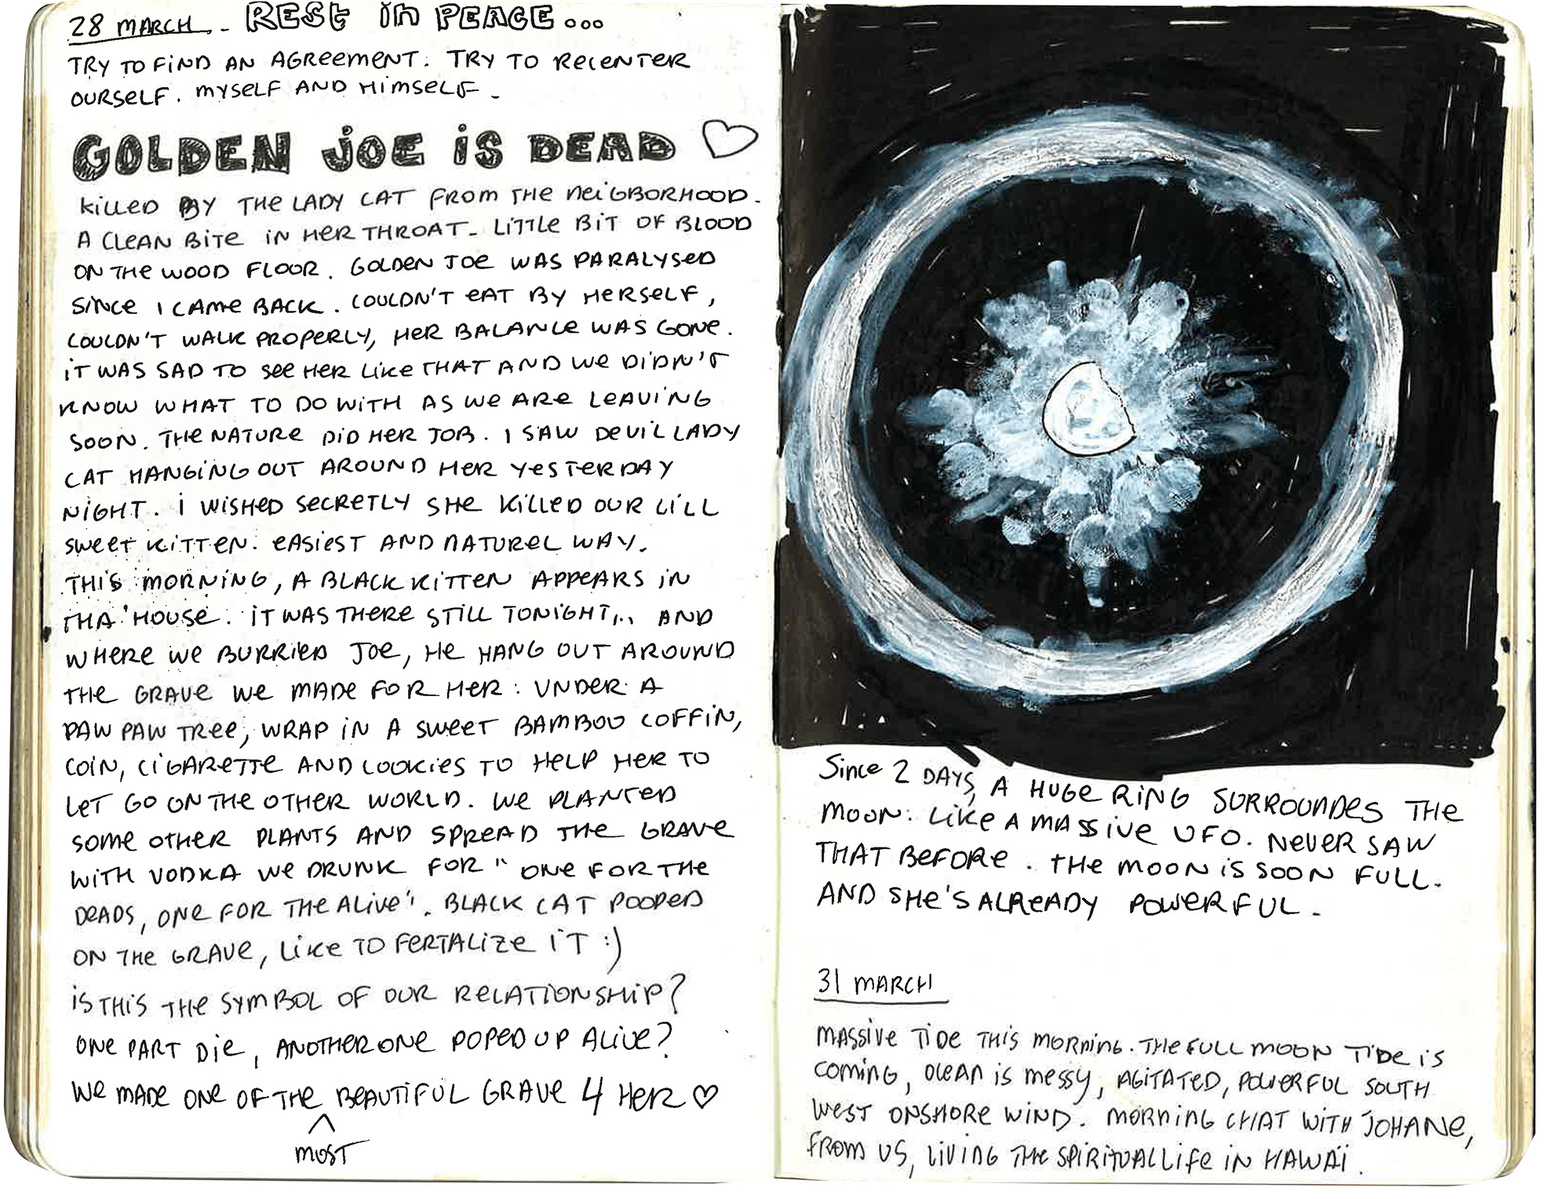 28 MARCH - REST in PEACE...
TRY TO FIND AN AGREEMENT. TRY TO RECENTER
OURSELF. MYSELF AND HIMSELF -
GOLDEN JOE IS DEAD ♡
KILLED BY THE LADY CAT FROM THE NEIGBORHOOD.
A CLEAN BITE IN HER THROAT - LITTLE BIT OF BLOOD
ON THE WOOD FLOOR. GOLDEN JOE WAS PARALYSED
SINCE I CAME BACK. COULDN'T EAT BY HERSELF,
COULDN'T WALK PROPERLY, HER BALANCE WAS GONE.
IT WAS SAD TO SEE HER LIKE THAT AND WE DIDN'T
KNOW WHAT TO DO WITH AS WE ARE LEAVING
SOON. THE NATURE DID HER JOB. I SAW DEVIL LADY
CAT HANGING OUT AROUND HER YESTERDAY
NIGHT. I WISHED SECRETLY SHE KILLED OUR LILL
SWEET KITTEN. EASIEST AND NATUREL WAY.
THIS MORNING, A BLACK KITTEN APPEARS IN
THA'HOUSE. IT WAS THERE STILL TONIGHT... AND
WHERE WE BURRIED JOE, HE HANG OUT AROUND
THE GRAVE WE MADE FOR HER: UNDER A
PAW PAW TREE, WRAP IN A SWEET BAMBOO COFFIN,
COIN, CIGARETTE AND COOKIES TO HELP HER TO
LET GO ON THE OTHER WORLD. WE PLANTED
SOME OTHER PLANTS AND SPREAD THE GRAVE
WITH VODKA WE DRUNK FOR "ONE FOR THE
DEADS, ONE FOR THE ALIVE". BLACK CAT POOPED
ON THE GRAVE, LIKE TO FERTALIZE IT :)
IS THIS THE SYMBOL OF OUR RELATIONSHIP?
ONE PART DIE, ANOTHER ONE POPED UP ALIVE?
WE MADE ONE OF THE BEAUTIFUL GRAVE 4 HER ♡
^
MOST
Since 2 DAYS, A HUGE RING SURROUNDES THE
MOON. LIKE A MASSIVE UFO. NEVER SAW
THAT BEFORE. THE MOON IS SOON FULL.
AND SHE'S ALREADY POWERFUL -
31 MARCH
MASSIVE TIDE THIS MORNING. THE FULL MOON TIDE IS
COMING, OCEAN IS MESSY, AGITATED, POWERFUL SOUTH
WEST ONSHORE WIND. MORNING CHAT WITH JOHANE,
FROM US, LIVING THE SPIRITUAL LIFE IN HAWAÏ.